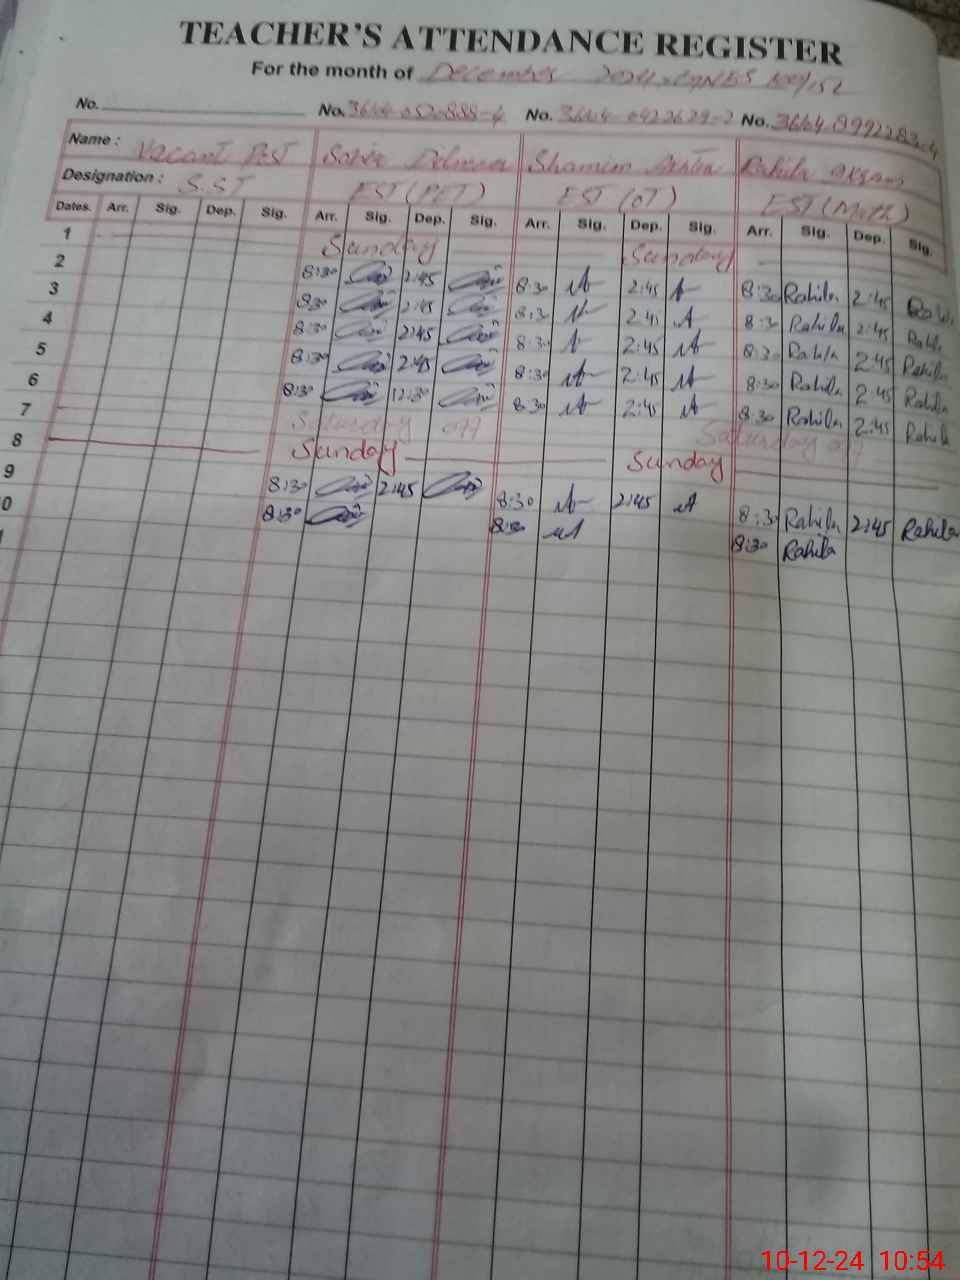 TEACHER'S ATTENDANCE REGISTER
For the month of December 2024
No. No. No. No.
Name : Vacant Post Shamim Rahila
Designation : S.S.T EST (PET) EST (OT) EST (Math)
Dates. Arr. Sig. Dep. Sig. Arr. Sig. Dep. Sig. Arr. Sig. Dep. Sig. Arr. Sig. Dep. Sig.
1 Sunday Sunday
2 8:30 2:45 8:30 2:45 8:30 Rahila 2:45 Rahila
3 8:30 2:45 8:30 2:45 8:30 Rahila 2:45 Rahila
4 8:30 2:45 8:30 2:45 8:30 Rahila 2:45 Rahila
5 8:30 2:45 8:30 2:45 8:30 Rahila 2:45 Rahila
6 8:30 12:30 8:30 2:45 8:30 Rahila 2:45 Rahila
7 Saturday off Saturday off
8 Sunday Sunday
9 8:30 2:45 8:30 2:45 8:30 Rahila 2:45 Rahila
0 8:30 8:30 8:30 Rahila
10-12-24 10:54